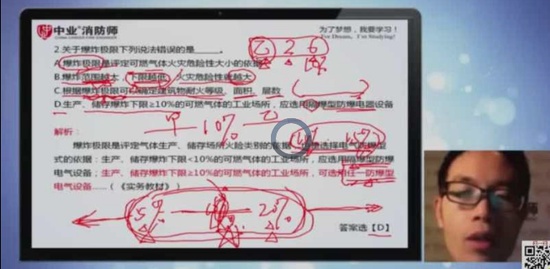 中业消防师
为了梦想,我要学习!
For Dream, I'm Studying!
2.关于爆炸极限下列说法错误的是____。
A.爆炸极限是评定可燃气体火灾危险性大小的依据
B.爆炸范围越大,下限越低,火灾危险性就越大
C.根据爆炸极限可以确定建筑物耐火等级、面积、层数
D.生产、储存爆炸下限≥10%的可燃气体的工业场所,应选用隔爆型防爆电器设备
乙 2 6
甲 10%
15%
解析:
爆炸极限是评定气体生产、储存场所火险类别的依据
选择电气防爆型
式的依据:生产、储存爆炸下限<10%的可燃气体的工业场所,应选用隔爆型防爆
电气设备;生产、储存爆炸下限≥10%的可燃气体的工业场所,可选用任一防爆型
电气设备……(《实务教材》)
5%
答案选【D】